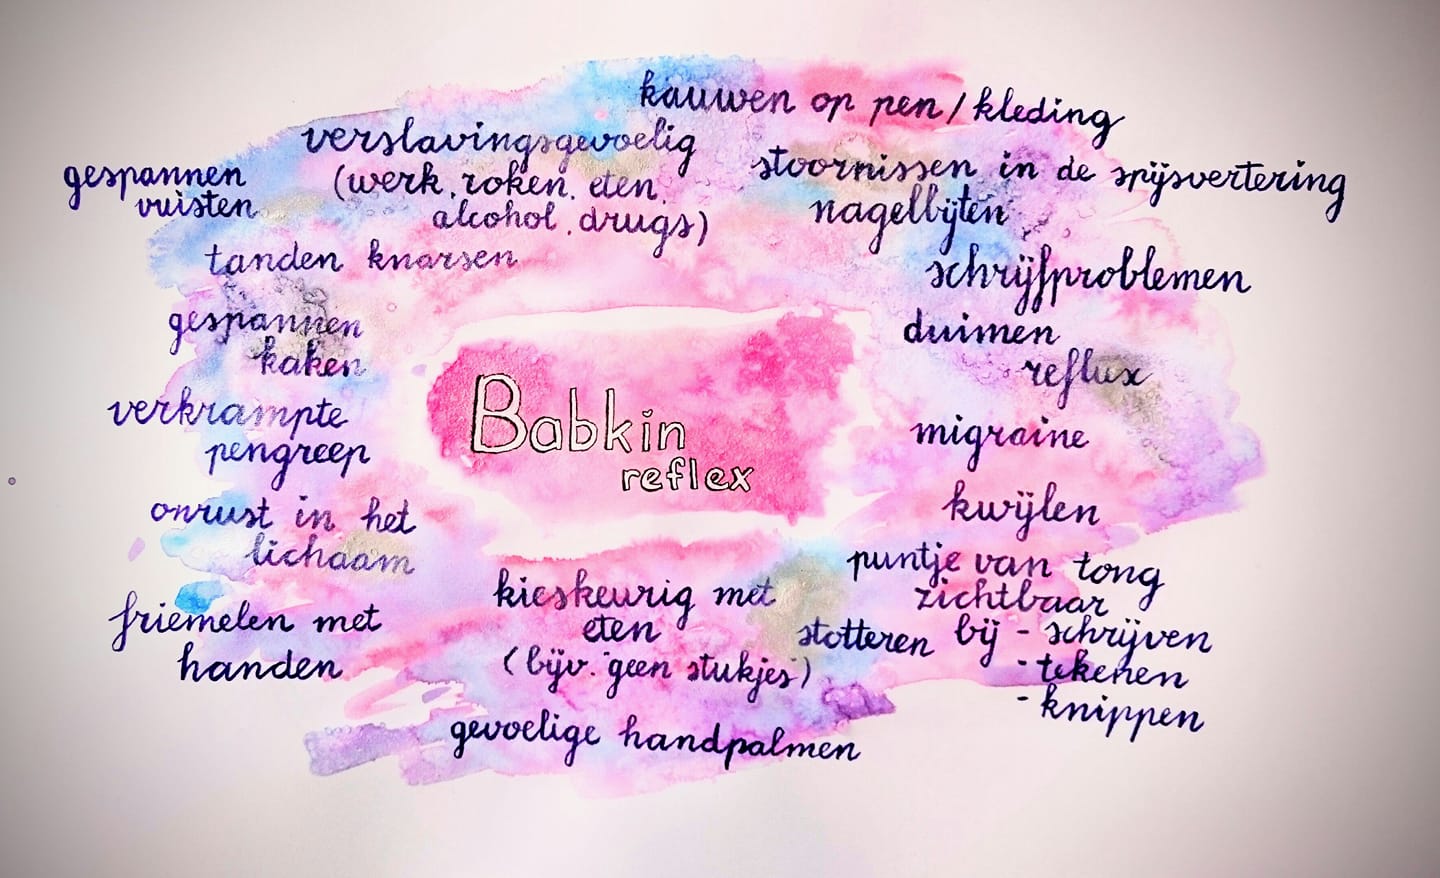 kauwen op pen / kleding
verslavingsgevoelig
(werk, roken, eten,
alcohol, drugs)
stoornissen in de spijsvertering
gespannen
vuisten
nagelbijten
tanden knarsen
schrijfproblemen
gespannen
kaken
duimen
reflux
Babkin
reflex
verkrampte
pengreep
migraine
onrust in het
lichaam
kwijlen
puntje van tong
zichtbaar
bij - schrijven
- tekenen
- knippen
friemelen met
handen
kieskeurig met
eten
(bijv. "geen stukjes")
stotteren
gevoelige handpalmen